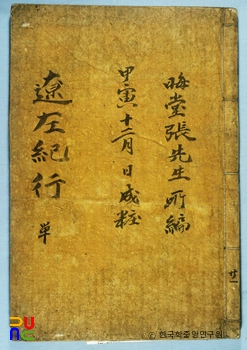 晦堂張先生所編
甲寅十二月日成粧
遼左紀行
單
한국학중앙연구원